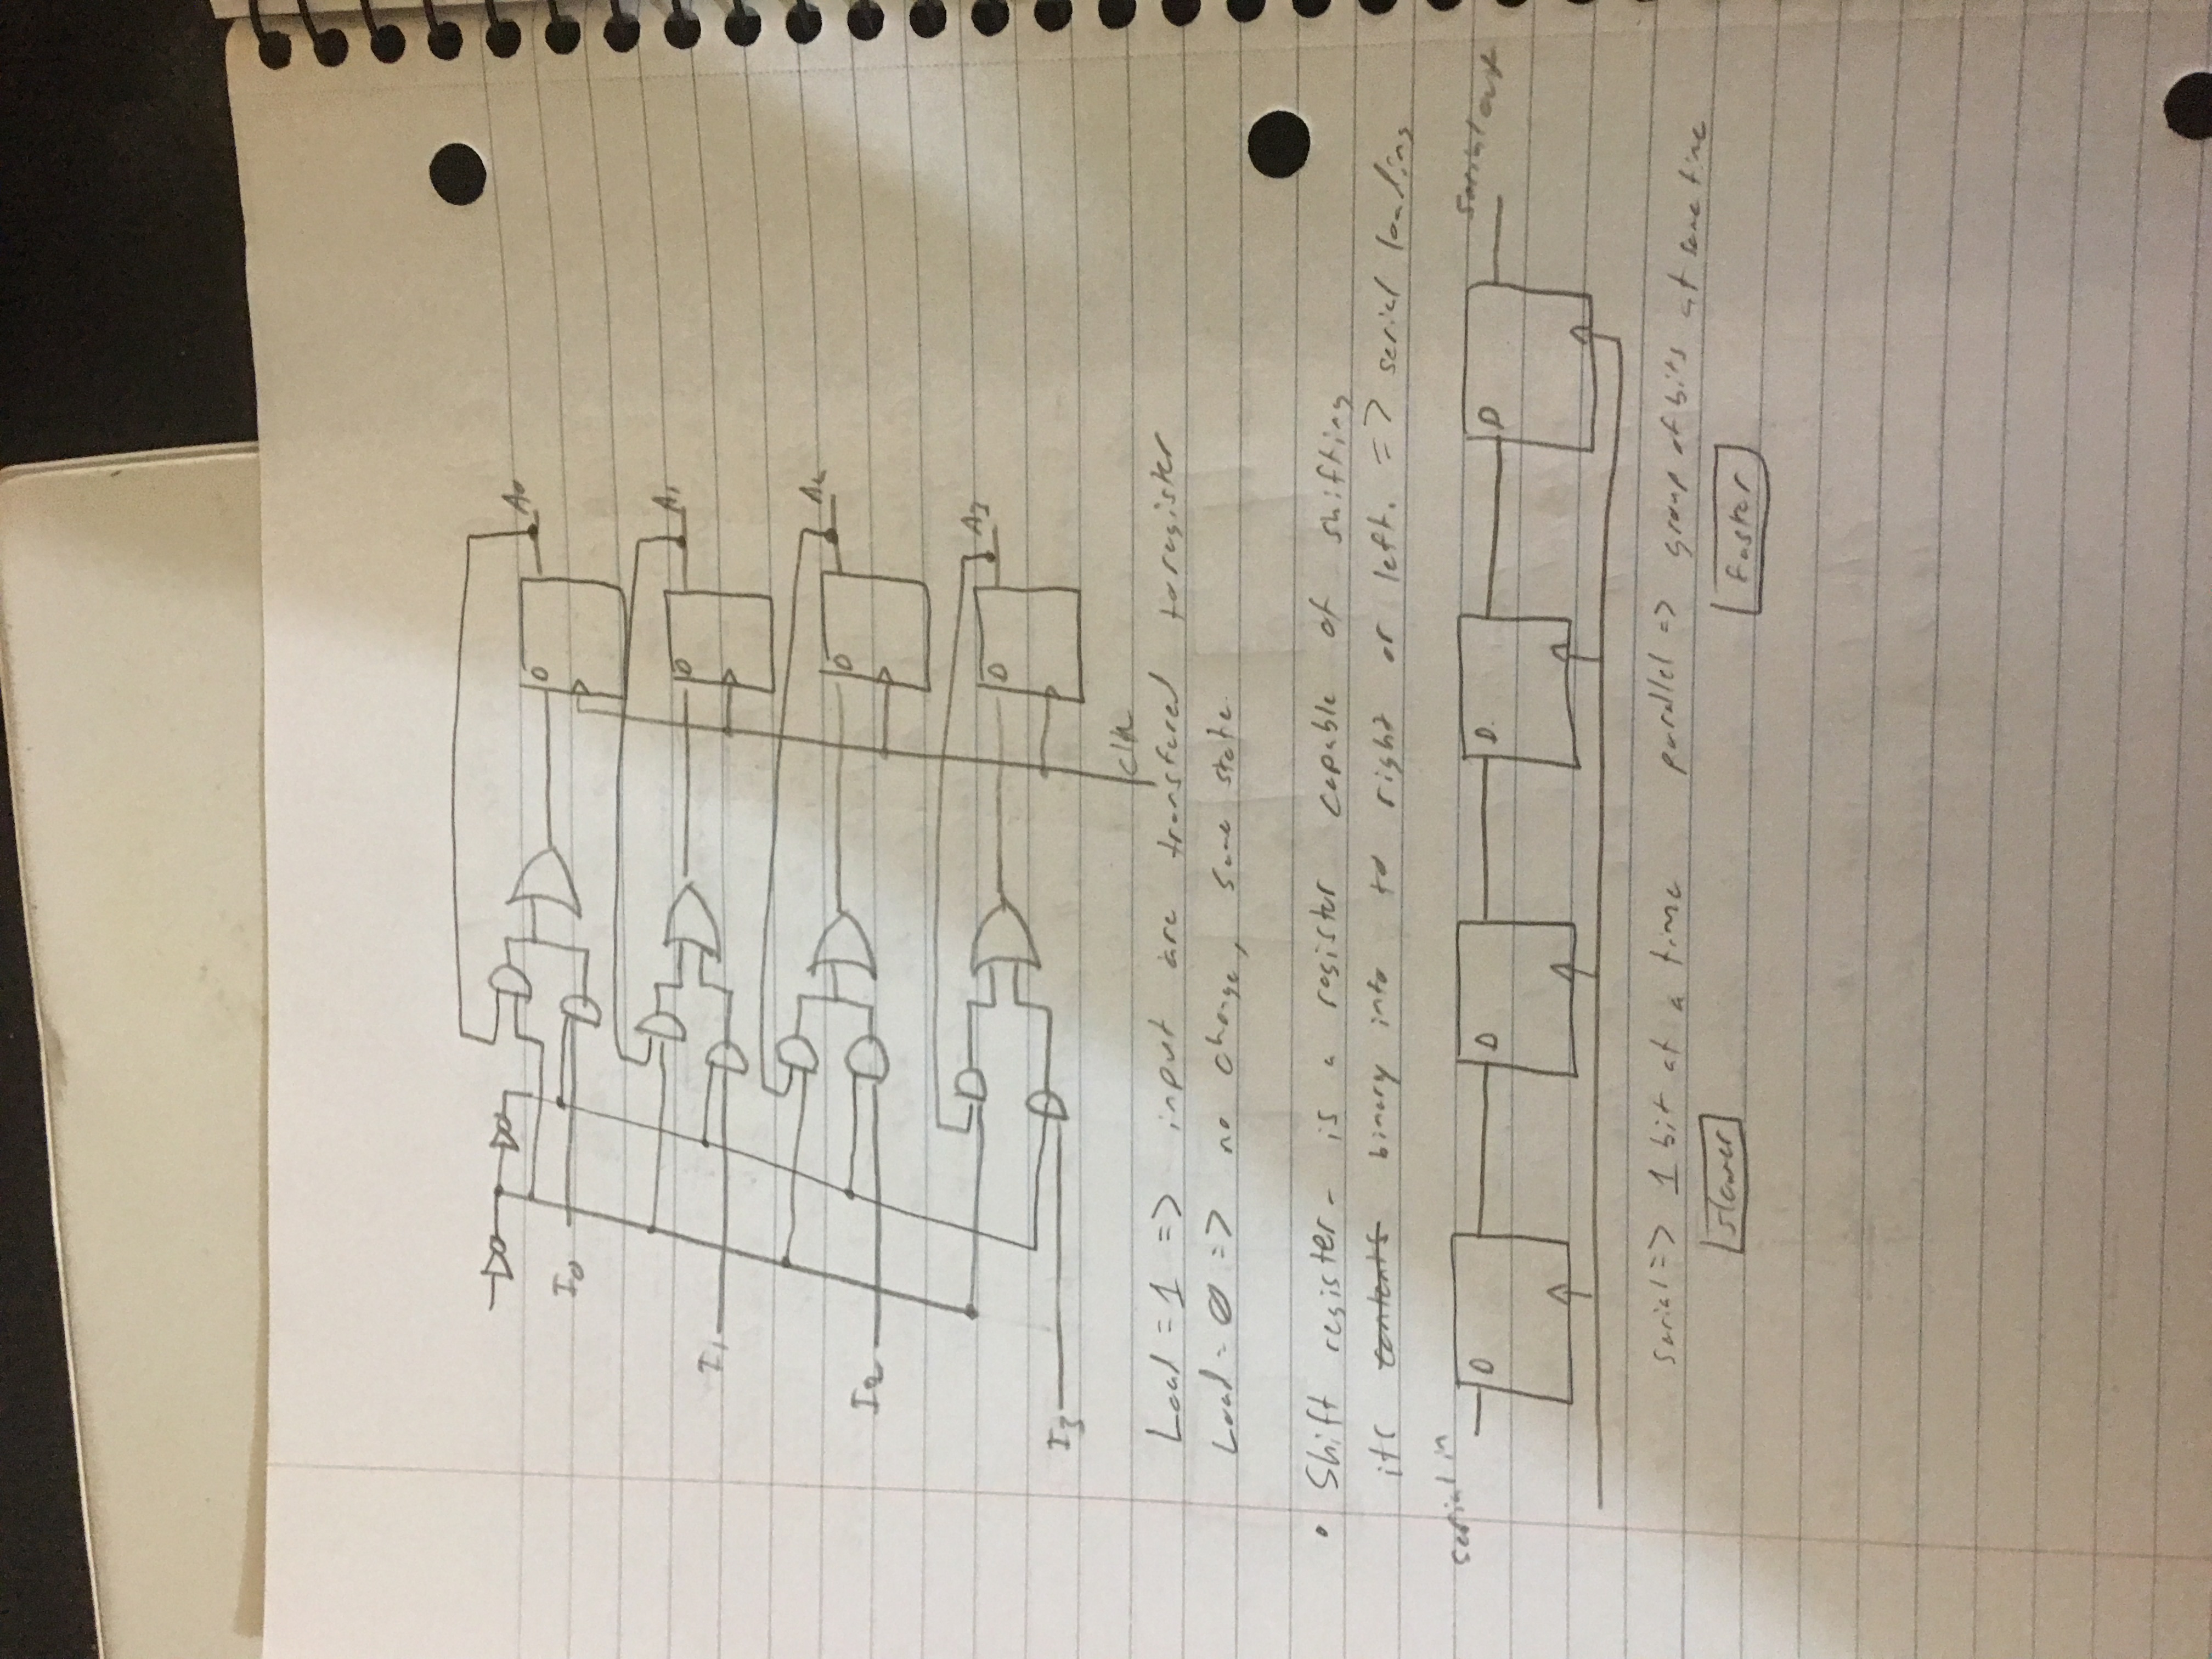 I0
D
A0
I1
D
A1
I2
D
A2
I3
D
A3
clk
Load = 1 => input are transfered to register
Load = 0 => no change, same state.
• Shift register - is a register capable of shifting
its contents binary into to right or left. => serial loading
serial in
D
D
D
D
serial out
serial => 1 bit at a time parallel => group of bits at same time
slower
faster